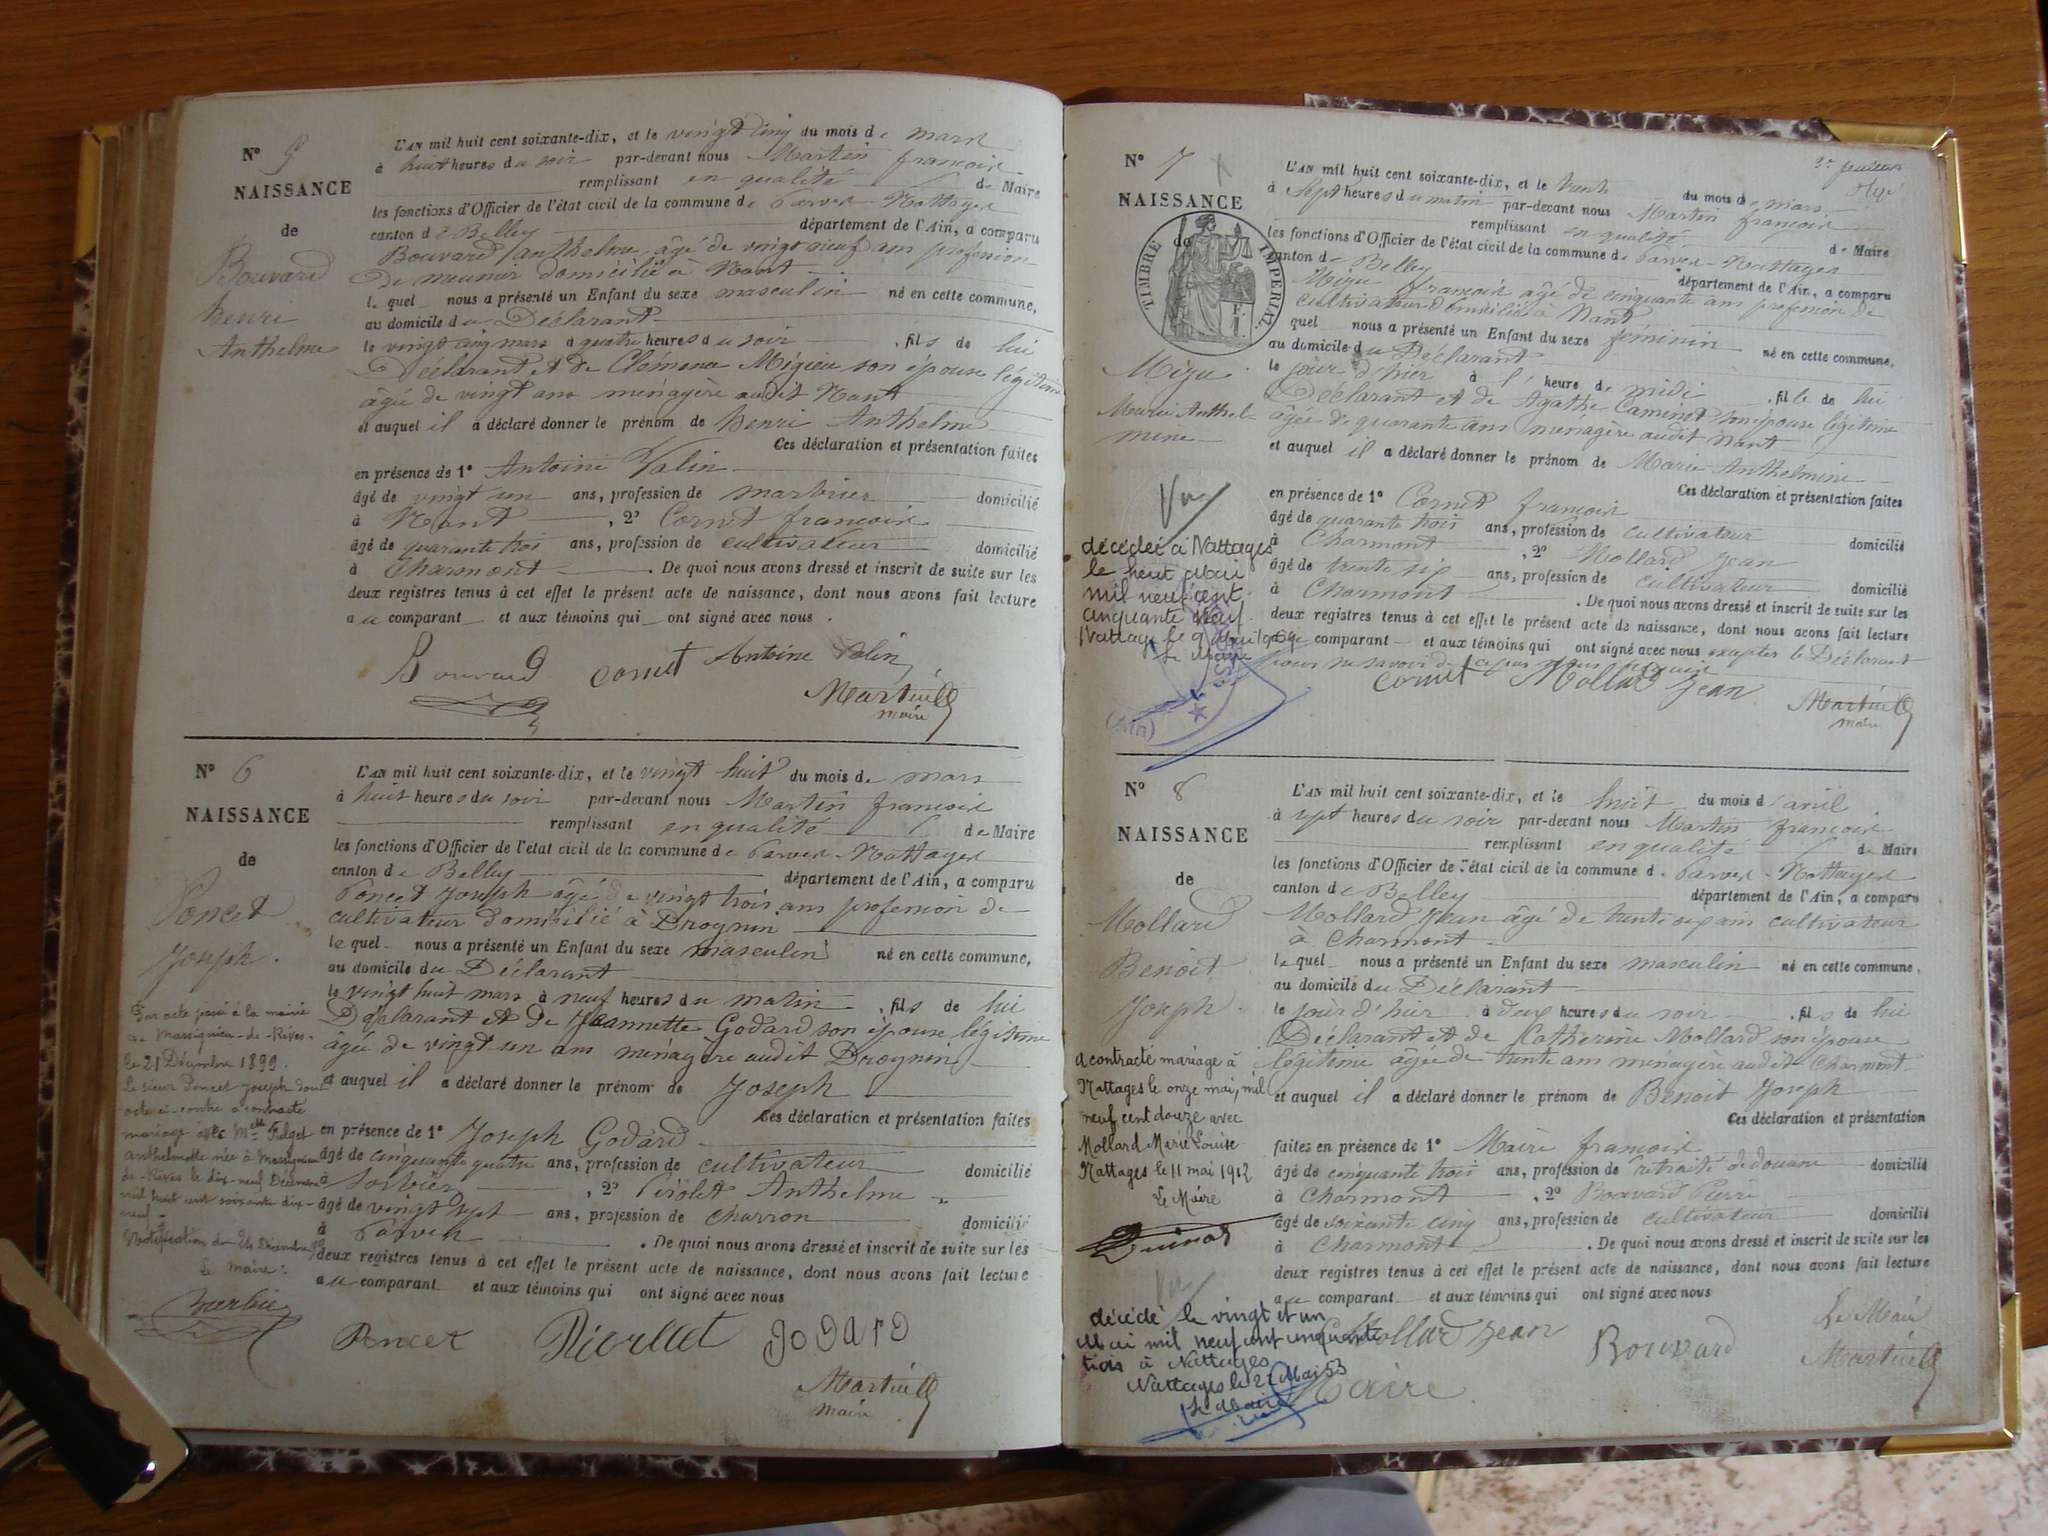 N° 5
NAISSANCE
de
Bouvard
henri
Anthelme
L'AN mil huit cent soixante-dix, et le vingt cinq du mois de mars
à huit heures du soir par-devant nous Martin françois
remplissant en qualité de Maire
les fonctions d'Officier de l'état civil de la commune de Parves-Nattages
canton de Belley département de l'Ain, a comparu
Bouvard anthelme âgé de vingt neuf ans profession
de meunier domicilié à Nant
lequel nous a présenté un Enfant du sexe masculin né en cette commune,
au domicile du Déclarant
le vingt cinq mars à quatre heures du soir, fils de lui
Déclarant et de Clémence Migieu son épouse légitime
âgée de vingt ans ménagère audit Nant
et auquel il a déclaré donner le prénom de henri Anthelme
Ces déclaration et présentation faites
en présence de 1° Antoine Valin
âgé de vingt un ans, profession de marbrier domicilié
à Nant, 2° Cornet françois
âgé de quarante trois ans, profession de cultivateur domicilié
à Charmont. De quoi nous avons dressé et inscrit de suite sur les
deux registres tenus à cet effet le présent acte de naissance, dont nous avons fait lecture
au comparant et aux témoins qui ont signé avec nous.
Bouvard cornet Antoine Valin
Martin
maire
N° 6
NAISSANCE
de
Poncet
Joseph.
L'AN mil huit cent soixante-dix, et le vingt huit du mois de mars
à huit heures du soir par-devant nous Martin françois
remplissant en qualité de Maire
les fonctions d'Officier de l'état civil de la commune de Parves-Nattages
canton de Belley département de l'Ain, a comparu
Poncet Joseph âgé de vingt trois ans profession de
cultivateur domicilié à Drognin
lequel nous a présenté un Enfant du sexe masculin né en cette commune,
au domicile du Déclarant
le vingt huit mars à neuf heures du matin, fils de lui
Déclarant et de Jeannette Godard son épouse légitime
âgée de vingt un ans ménagère audit Drognin
et auquel il a déclaré donner le prénom de Joseph
Ces déclaration et présentation faites
en présence de 1° Joseph Godard
âgé de cinquante quatre ans, profession de cultivateur domicilié
à Sorbier, 2° Pirolet Anthelme
âgé de vingt sept ans, profession de charron domicilié
à Parves. De quoi nous avons dressé et inscrit de suite sur les
deux registres tenus à cet effet le présent acte de naissance, dont nous avons fait lecture
au comparant et aux témoins qui ont signé avec nous
Par acte passé à la mairie
de Massignieu-de-Rives
le 21 Décembre 1899.
Le sieur Poncet Joseph dont
acte ci-contre a contracté
mariage avec Melle
anthelmette née à Massignieu
de-Rives le dix-neuf Décembre
mil huit cent soixante dix-
neuf
Notification du 24 Décembre
Le Maire:
Barbier
Poncet Godard
Martin
maire
N° 7
NAISSANCE
de
TIMBRE IMPERIAL
Migu
Marie Anthel-
mine
2e feuillet
L'AN mil huit cent soixante-dix, et le trente du mois de mars
à sept heures du matin par-devant nous Martin françois
remplissant en qualité de Maire
les fonctions d'Officier de l'état civil de la commune de Parves-Nattages
canton de Belley département de l'Ain, a comparu
Migu françois âgé de cinquante ans profession de
cultivateur domicilié à Nant
quel nous a présenté un Enfant du sexe féminin né en cette commune,
au domicile du Déclarant
le jour d'hier à l'heure de midi, fille de lui
Déclarant et de Agathe son épouse légitime
âgée de quarante ans ménagère audit Nant
et auquel il a déclaré donner le prénom de Marie Anthelmine
Ces déclaration et présentation faites
en présence de 1° Cornet françois
âgé de quarante trois ans, profession de cultivateur domicilié
à Charmont, 2° Mollard Jean
âgé de trente six ans, profession de cultivateur domicilié
à Charmont. De quoi nous avons dressé et inscrit de suite sur les
deux registres tenus à cet effet le présent acte de naissance, dont nous avons fait lecture
au comparant et aux témoins qui ont signé avec nous excepté le Déclarant
pour ne savoir
Vu
décédée à Nattages
le huit Mai
mil neuf cent
cinquante neuf
Nattages le 9 Mai 1959
Le Maire
(Ain)
cornet Mollard Jean
Martin
maire
N° 8
NAISSANCE
de
Mollard
Benoit
Joseph.
L'AN mil huit cent soixante-dix, et le huit du mois d'avril
à sept heures du soir par-devant nous Martin françois
remplissant en qualité de Maire
les fonctions d'Officier de l'état civil de la commune de Parves-Nattages
canton de Belley département de l'Ain, a comparu
Mollard Jean âgé de trente six ans cultivateur
à Charmont
lequel nous a présenté un Enfant du sexe masculin né en cette commune,
au domicile du Déclarant
le jour d'hier à deux heures du soir, fils de lui
Déclarant et de Katherine Mollard son épouse
légitime âgée de trente ans ménagère audit Charmont
et auquel il a déclaré donner le prénom de Benoit Joseph
Ces déclaration et présentation
faites en présence de 1° Maire françois
âgé de cinquante trois ans, profession de retraité de douane domicilié
à Charmont, 2° Bouvard Pierre
âgé de soixante cinq ans, profession de cultivateur domicilié
à Charmont. De quoi nous avons dressé et inscrit de suite sur les
deux registres tenus à cet effet le présent acte de naissance, dont nous avons fait lecture
au comparant et aux témoins qui ont signé avec nous
a contracté mariage à
Nattages le onze mai, mil
neuf cent douze avec
Mollard Marie Louise
Nattages le 11 mai 1912
Le Maire
Vu
décédé le vingt et un
Mai mil neuf cent cinquante
trois à Nattages
Nattages le 22 Mai 53
Le Maire
Mollard Jean Bouvard
Maire
Le Maire
Martin